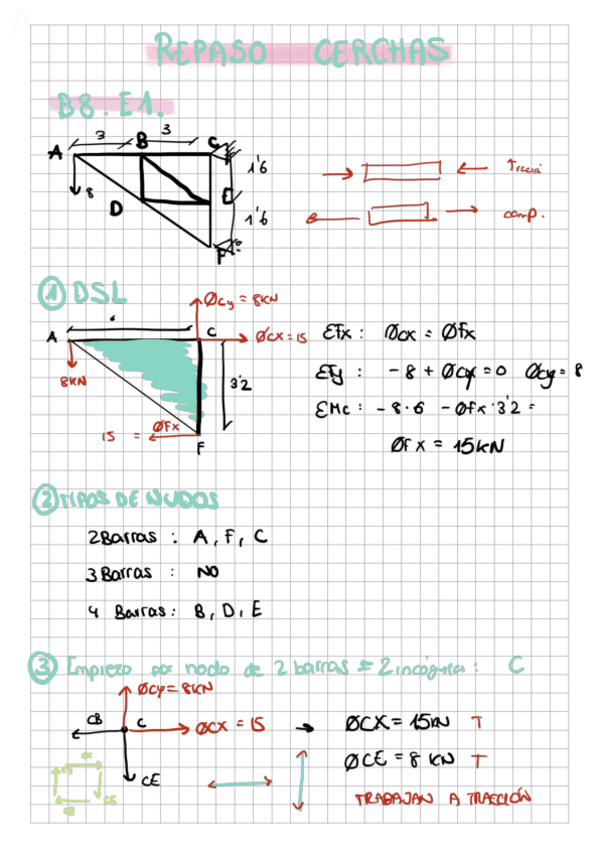 REPASO CERCHAS
B8. E1.
3 3
A B C
1'6
8
D E
1'6
F
Tracción
comp.
① DSL
ØCy = 8KN
A C ØCX = 15
8KN
3'2
15 = ØFx
F
ΣFx : ØCX = ØFX
ΣFy : -8 + ØCy = 0 ØCy = 8
ΣMC : -8·6 - ØFX·3'2 =
ØFX = 15KN
② TIPOS DE NUDOS
2 Barras : A, F, C
3 Barras : NO
4 Barras : B, D, E
③ Empiezo por nodo de 2 barras = 2 incógnitas : C
ØCY = 8KN
CB C ØCX = 15
CE
ØCX = 15KN T
ØCE = 8 KN T
TRABAJAN A TRACCIÓN